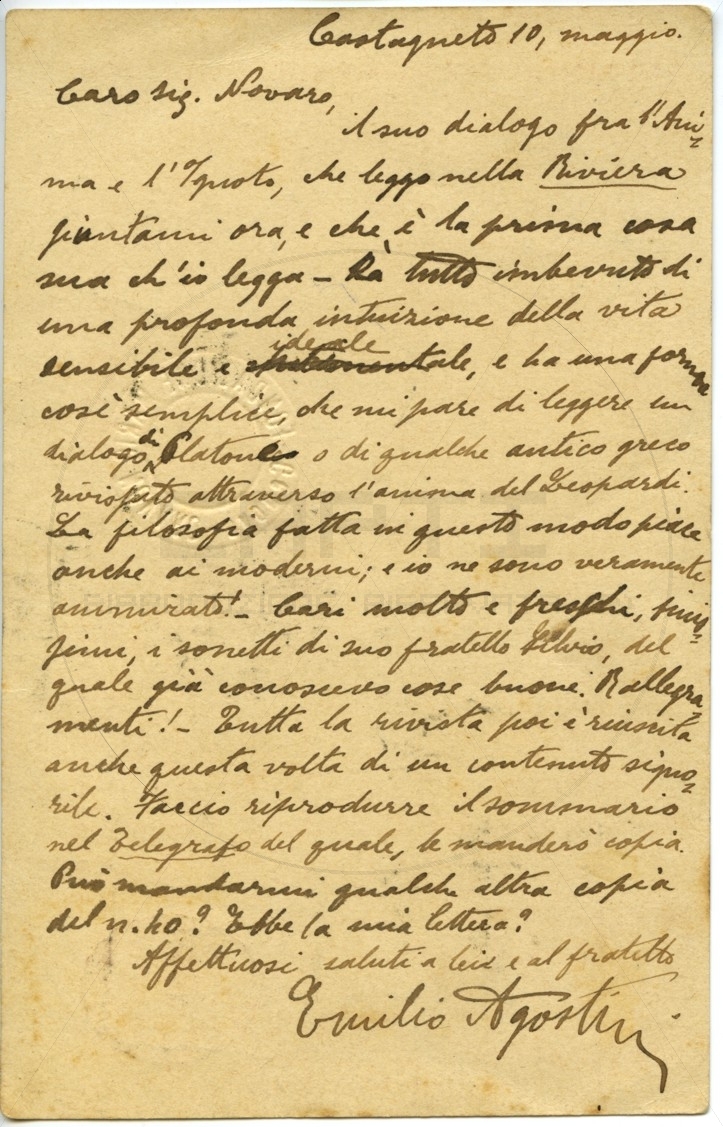 Castagneto 10, maggio.
Caro Sig. Novaro,
il suo dialogo fra l'Ani-
ma e l'Ignoto, che leggo nella Riviera
giuntami ora, e che è la prima cosa
sua ch'io legga - è tutto imbevuto di
una profonda intuizione della vita
ideale
sensibile e sentimentale, e ha una forma
così semplice, che mi pare di leggere un
dialogo di Platone o di qualche antico greco
rivissuto attraverso l'anima del Leopardi.
La filosofia fatta in questo modo piace
anche ai moderni; e io ne sono veramente
ammirato! - Cari molto e freschi, finis-
simi, i sonetti di suo fratello Silvio, del
quale già conoscevo cose buone. Rallegra-
menti! - Tutta la rivista poi è riuscita
anche questa volta di un contenuto signo-
rile. Faccio riprodurre il sommario
nel Telegrafo del quale, le manderò copia.
Può mandarmi qualche altra copia
del n.ro? Ebbe la mia lettera?
Affettuosi saluti a lei e al fratello
Emilio Agostini